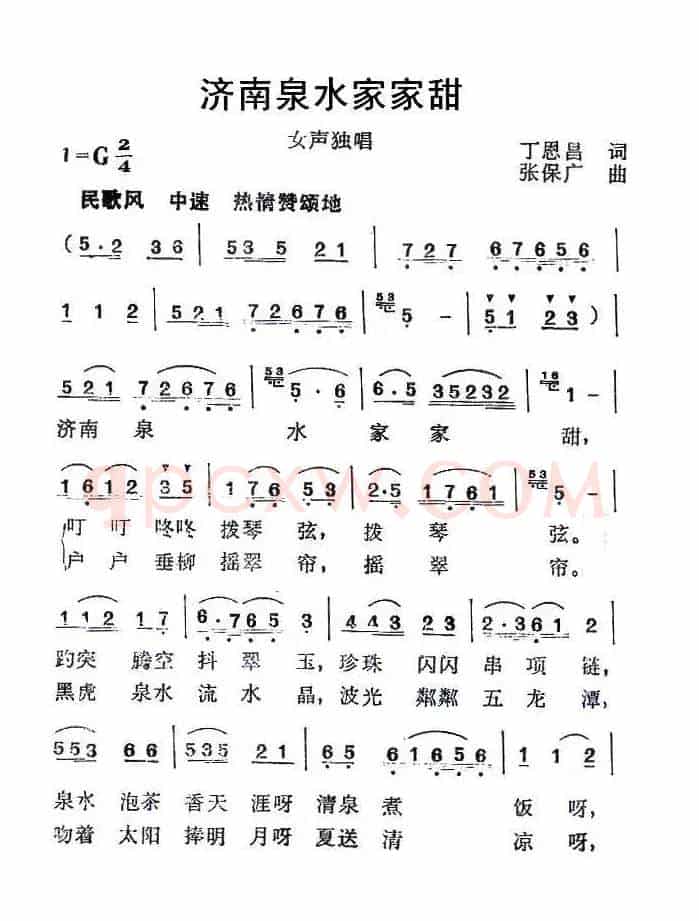 济南泉水家家甜
女声独唱
1=G 2/4
丁恩昌 词
张保广 曲
民歌风 中速 热情赞颂地
(5·2 36 | 53 5 21 | 727 67656 |
1 1 2 | 521 72676 | 53 5 - | 51 23 ) |
521 72676 | 53 5·6 | 6·5 35232 | 16 1 - |
济南 泉 水 家 家 甜,
1612 35 | 176 53 | 2·5 1761 | 53 5 - |
叮 叮 咚咚 拨琴 弦, 拨 琴 弦。
户 户 垂柳 摇翠 帘, 摇 翠 帘。
112 17 | 6·765 3 | 443 23 | 2·361 2 |
趵突 腾空 抖 翠 玉, 珍珠 闪闪 串 项 链,
黑虎 泉水 流 水 晶, 波光 粼粼 五 龙 潭,
553 66 | 535 21 | 65 61656 | 1 12 |
泉水 泡茶 香天 涯呀 清泉 煮 饭 呀,
吻着 太阳 捧明 月呀 夏送 清 凉 呀,
qpcxw.COM